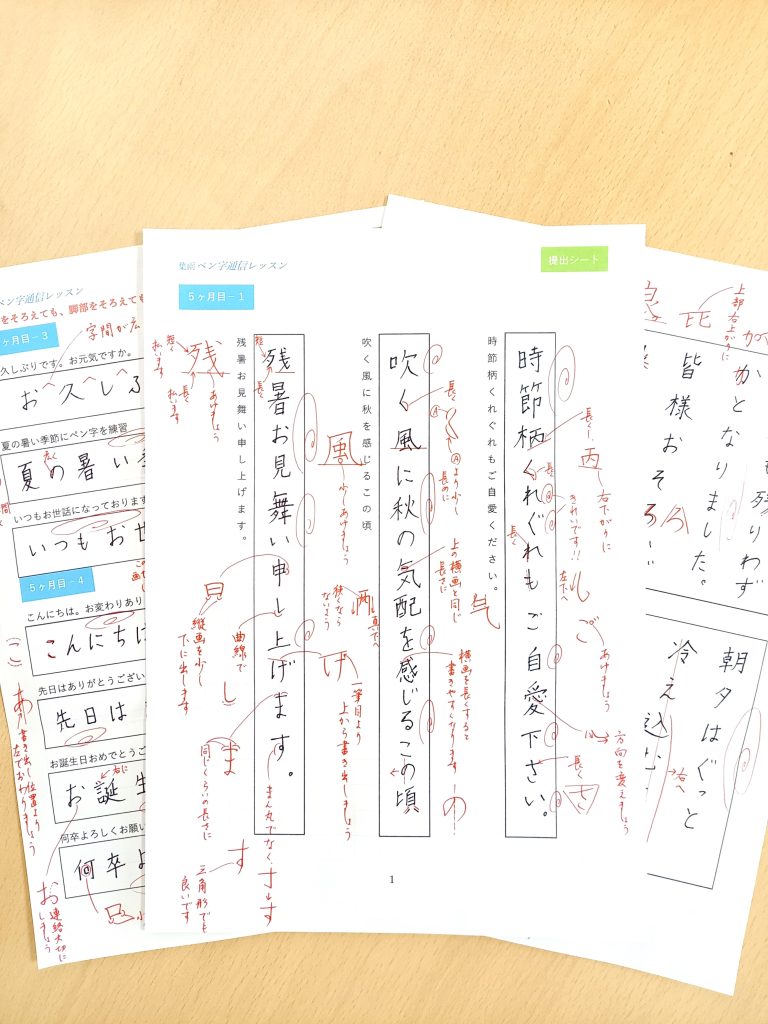 ペン字通信レッスン
提出シート
5ヶ月目-1
時節柄くれぐれもご自愛ください。
時節柄くれぐれもご自愛下さい。
長くし、
丙
右下がりに
長く
きれいです!!
左下へ
長く
ご
あけましょう
方向を変えましょう
長く
吹く風に秋を感じるこの頃
吹く風に秋の気配を感じるこの頃
長く
Ⓐ
Ⓐより少し
長めに
上の横画と同じ
長さに
気
横画を長くすると
書きやすくなります
の
風
少しあけましょう
狭くなら
ないよう
真下へ
げ
一筆目より
上から書き出しましょう
残暑お見舞い申し上げます。
残暑お見舞い申し上げます。
短く
長く
残
短く
払います
長く
払います
あけましょう
見
縦画を少し
下に出します
曲線で
し
ま
同じくらいの長さに
まん丸でなく
す
す
三角形でも
良いです
1
ペン字通信レッスン
をそろえても、脚部をそろえても
ヶ月目-3
字間が広
久しぶりです。お元気ですか。
お久しぶ
夏の暑い季節にペン字を練習
夏の暑い季
広く
いつもお世話になっております
いつもお世
5ヶ月目-4
こんにちは。お変わりあり
こんにちは
先日はありがとうござい
先日は
お誕生日おめでとうご
お誕生
右に
何卒よろしくお願い
何卒よ
あ
書き出し位置より
左でおわりましょう
お
連絡大切に
しましょう
上部右上がりに
比
も残りわず
かとなりました。
皆様おそろい
ろ
朝夕はぐっと
冷え込む
右へ